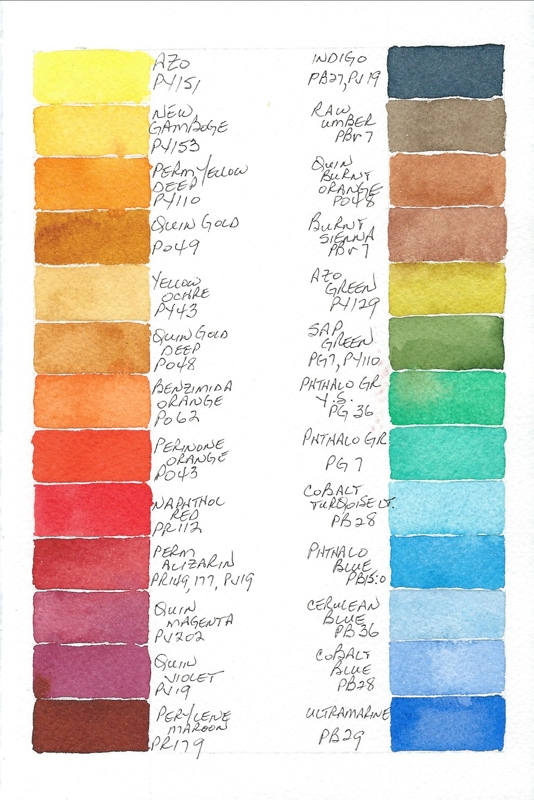 AZO
PY151
NEW
GAMBOGE
PY153
PERM YELLOW
DEEP
PY110
QUIN GOLD
PO49
YELLOW
OCHRE
PY43
QUIN GOLD
DEEP
PO48
BENZIMIDA
ORANGE
PO62
PERINONE
ORANGE
PO43
NAPHTHOL
RED
PR112
PERM
ALIZARIN
PR149, 177, PV19
QUIN
MAGENTA
PV202
QUIN
VIOLET
PV19
PERYLENE
MAROON
PR179
INDIGO
PB27, PV19
RAW
UMBER
PBr7
QUIN
BURNT
ORANGE
PO48
BURNT
SIENNA
PBr7
AZO
GREEN
PY129
SAP
GREEN
PG7, PY110
PHTHALO GR
Y.S.
PG 36
PHTHALO GR
PG 7
COBALT
TURQUOISE LT.
PB28
PHTHALO
BLUE
PB15:0
CERULEAN
BLUE
PB36
COBALT
BLUE
PB28
ULTRAMARINE
PB29